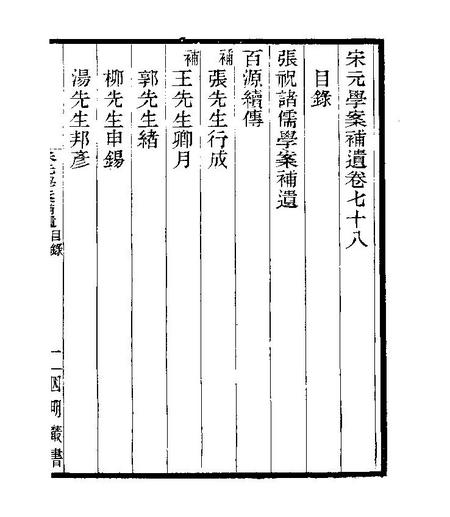 宋元學案補遺卷七十八
目錄
張祝諸儒學案補遺
百源續傳
補張先生行成
補王先生卿月
郭先生緒
柳先生申錫
湯先生邦彥
宋元學案補遺目錄
一 四明叢書